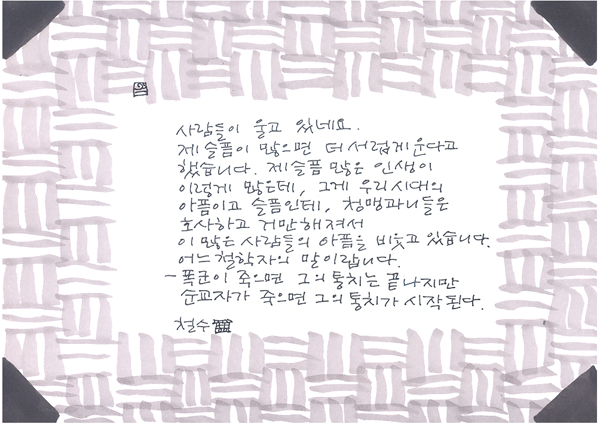 사람들이 울고 있네요.
제 슬픔이 많으면 더 서럽게 운다고
했습니다. 제 슬픔 많은 인생이
이렇게 많은데, 그게 우리시대의
아픔이고 슬픔인데, 청맹과니들은
호사하고 거만해져서
이 많은 사람들의 아픔을 비웃고 있습니다.
어느 철학자의 말이랍니다.
- 폭군이 죽으면 그의 통치는 끝나지만
순교자가 죽으면 그의 통치가 시작된다.
철수